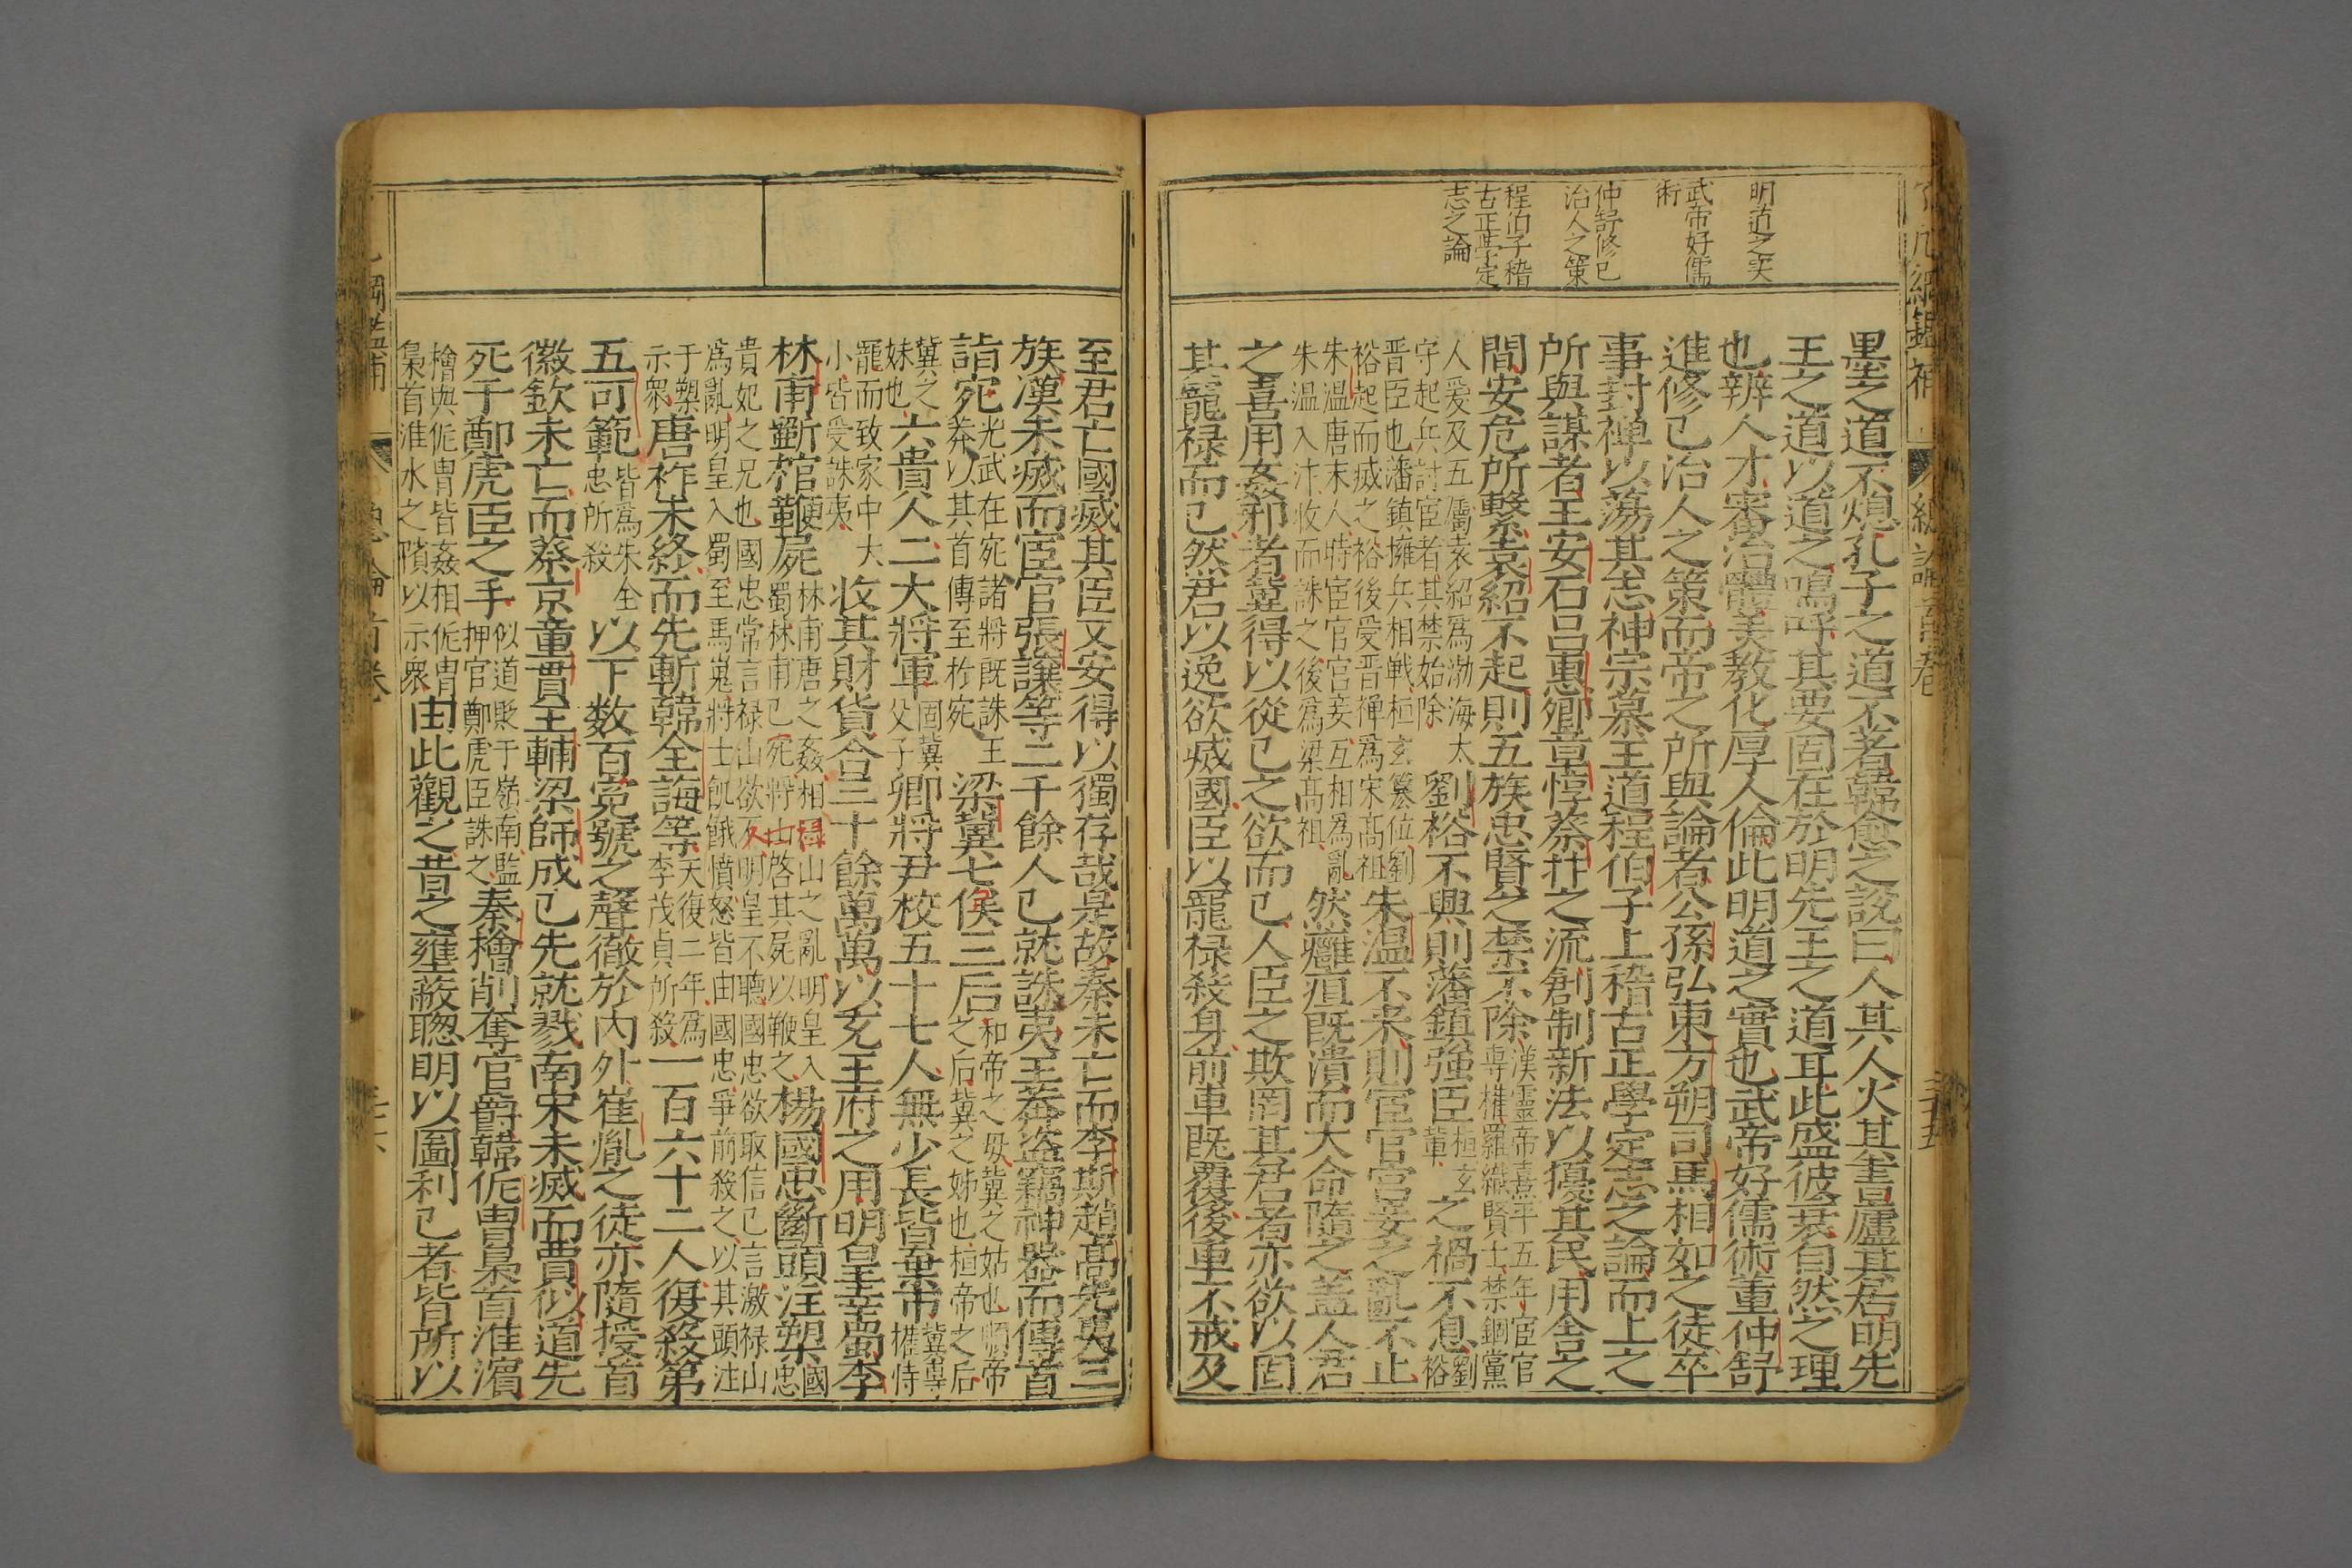 明道之實
武帝好儒
術
仲舒修己
治人之策
程伯子稽
古正學定
志之論
墨之道不熄孔子之道不著韓愈之說曰人其人火其書廬其居明先
王之道以道之嗚呼其要固在於明先王之道耳此盛彼衰自然之理
也辨人才審治體美教化厚人倫此明道之實也武帝好儒術董仲舒
進修己治人之策而帝之所與論者公孫弘東方朔司馬相如之徒卒
事封禅以蕩其志神宗慕王道程伯子上稽古正學定志之論而上之
所與謀者王安石呂惠卿章惇蔡卞之流創制新法以擾其民用舍之
間安危所繫袁紹不起則五族忠賢之禁不除
漢靈帝熹平五年宦官
專權羅織賢士禁錮黨
人爰及五屬袁紹爲渤海太
守起兵討宦者其禁始除
劉裕不興則藩鎮强臣
桓玄
軰
之禍不息
劉
裕
晋臣也藩鎮擁兵相戰桓玄簒位劉
裕起而滅之裕後受晋禅爲宋髙祖
朱温不来則宦官宮妾之亂不止
朱温唐末人時宦官宮妾互相爲亂
朱温入汴收而誅之後爲梁髙祖
然癰疽既潰而大命隨之盖人君
之喜用姦邪者冀得以從己之欲而已人臣之欺罔其君者亦欲以固
其寵禄而已然君以逸欲滅國臣以寵禄殺身前車既覆後車不戒及
至君亡國滅其臣又安得以獨存哉是故秦未亡而李斯趙髙先夷三
族漢未滅而宦官張讓等二千餘人已就誅夷王莽盜竊神器而傳首
詣宛
光武在宛諸將既誅王
莽以其首傳至於宛
梁冀七侯三后
和帝之母冀之姑也順帝
之后冀之姊也桓帝之后
冀之
妹也
六貴人二大將軍
固冀
父子
卿將尹校五十七人無少長皆棄市
冀專
權恃
寵而致家中大
小皆受誅夷
收其財貨合三十餘萬萬以充王府之用明皇幸蜀李
林甫斵棺鞭屍
林甫唐之姦相禄山之亂明皇入
蜀林甫已死將士啓其屍以鞭之
楊國忠斷頭注槊
國
忠
貴妃之兄也國忠常言禄山欲反明皇不聽國忠欲取信己言激禄山
爲亂明皇入蜀至馬嵬將士飢餓憤怒皆由國忠爭前殺之以其頭注
于槊
示衆
唐祚未終而先斬韓全誨等
天復二年爲
李茂貞所殺
一百六十二人復殺第
五可範
皆爲朱全
忠所殺
以下数百寃號之聲徹於內外崔胤之徒亦隨授首
徽欽未亡而蔡京童貫王輔梁師成已先就戮南宋未滅而賈似道先
死于鄭虎臣之手
似道貶于嶺南監
押官鄭虎臣誅之
秦檜削奪官爵韓侂冑梟首淮濱
檜與侂冑皆姦相侂冑
梟首淮水之隤以示衆
由此觀之昔之壅蔽聰明以圖利己者皆所以